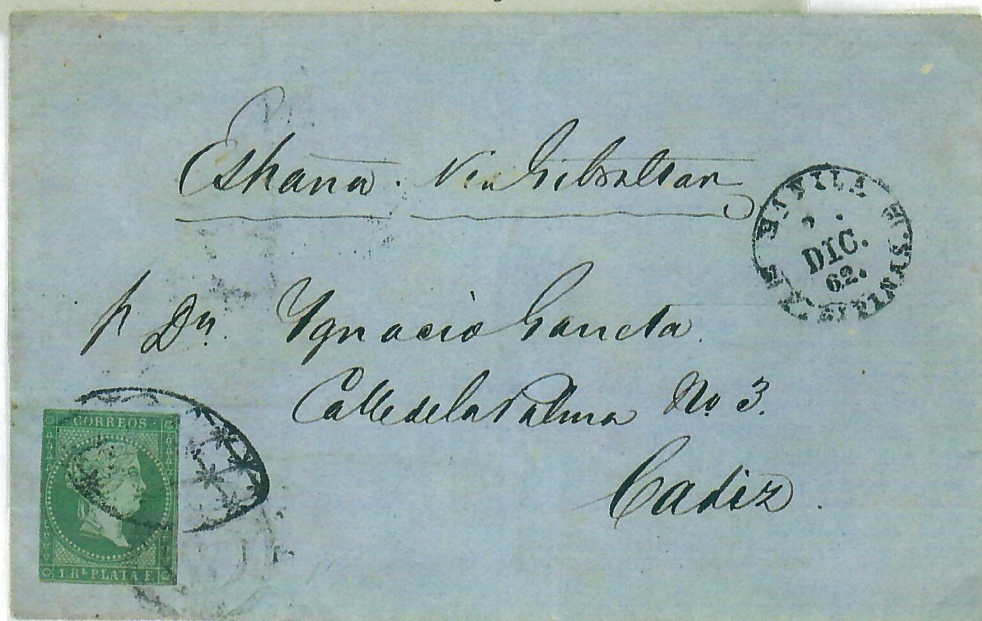 España. Via Gibraltar
MANILA
DIC.
62.
p Dn. Ygnacio Garcia.
Calle de la Palma No. 3.
Cadiz.
CORREOS
1 Rl. PLATA F.